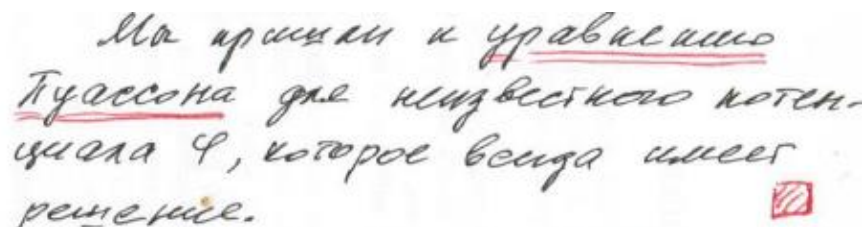 Мы пришли к уравнению
Пуассона для неизвестного потен-
циала φ, которое всегда имеет
решение.